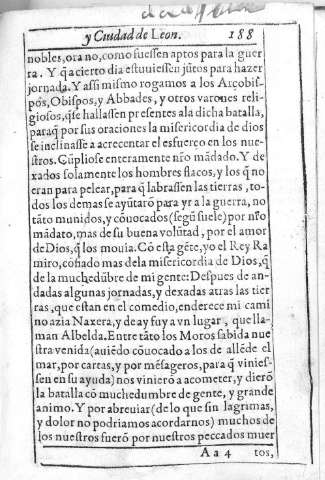 y Ciudad de Leon. 188
nobles, ora no, como fuessen aptos para la guer
ra. Y q̃ a cierto dia estuuiessen jũtos para hazer
jornada. Y assi mismo rogamos a los Arçobis-
pos, Obispos, y Abbades, y otros varones reli-
giosos, q̃ se hallassen presentes ala dicha batalla,
paraq̃ por sus oraciones la misericordia de dios
se inclinasse a acrecentar el esfuerço en los nue-
stros. Cũpliose enteramente nr̃o mãdado. Y de
xados solamente los hombres flacos, y los q̃ no
eran para pelear, para q̃ labrassen las tierras, to-
dos los demas se ayũtarõ para yr a la guerra, no
tãto munidos, y cõuocados (segũ suele) por nr̃o
mãdato, mas de su buena volũtad, por el amor
de Dios, q̃ los mouia. Cõ esta gẽte, yo el Rey Ra
miro, cõfiado mas dela misericordia de Dios, q̃
de la muchedũbre de mi gente: Despues de an-
dadas algunas jornadas, y dexadas atras las tier
ras, que estan en el comedio, enderece mi cami
no azia Naxera, y de ay fuy a vn lugar, que lla-
man Albelda. Entre tãto los Moros sabida nue
stra venida (auiẽdo cõuocado a los de allẽde el
mar, por cartas, y por mẽsageros, para q̃ viniess-
sen en su ayuda) nos vinierõ a acometer, y dierõ
la batalla cõ muchedumbre de gente, y grande
animo. Y por abreuiar (de lo que sin lagrimas,
y dolor no podriamos acordarnos) muchos de
los nuestros fuerõ por nuestros peccados muer
Aa 4 tos,